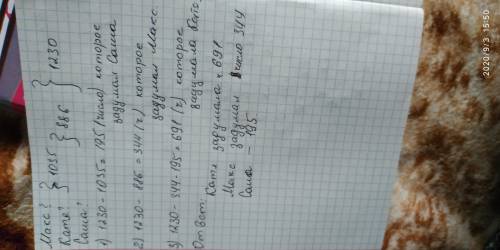 Макс? } 1035 } 1230
Катя? } 886
Саша?
1) 1230 - 1035 = 195 (число) которое
задумал Саша
2) 1230 - 886 = 344 (ч) которое
задумал Макс
3) 1230 - 344 - 195 = 691 (ч) которое
задумала Катя
Ответ: Катя задумала ч. 691
Макс задумал число 344
Саша - 195
2020/9/3 15:50